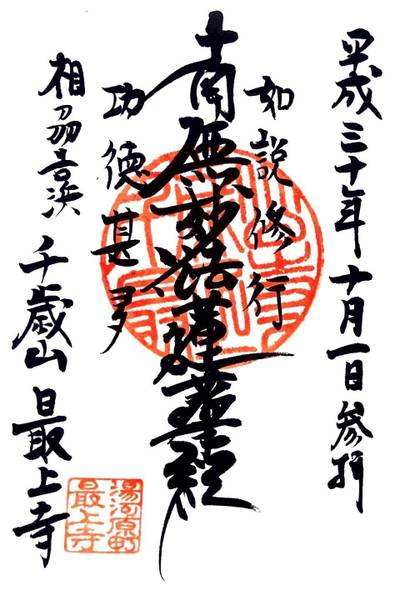 平成三十年十月一日参拝
如説修行
南無妙法蓮華経
功徳甚多
相刕吉浜 千歳山 最上寺
湯河原町
最上寺